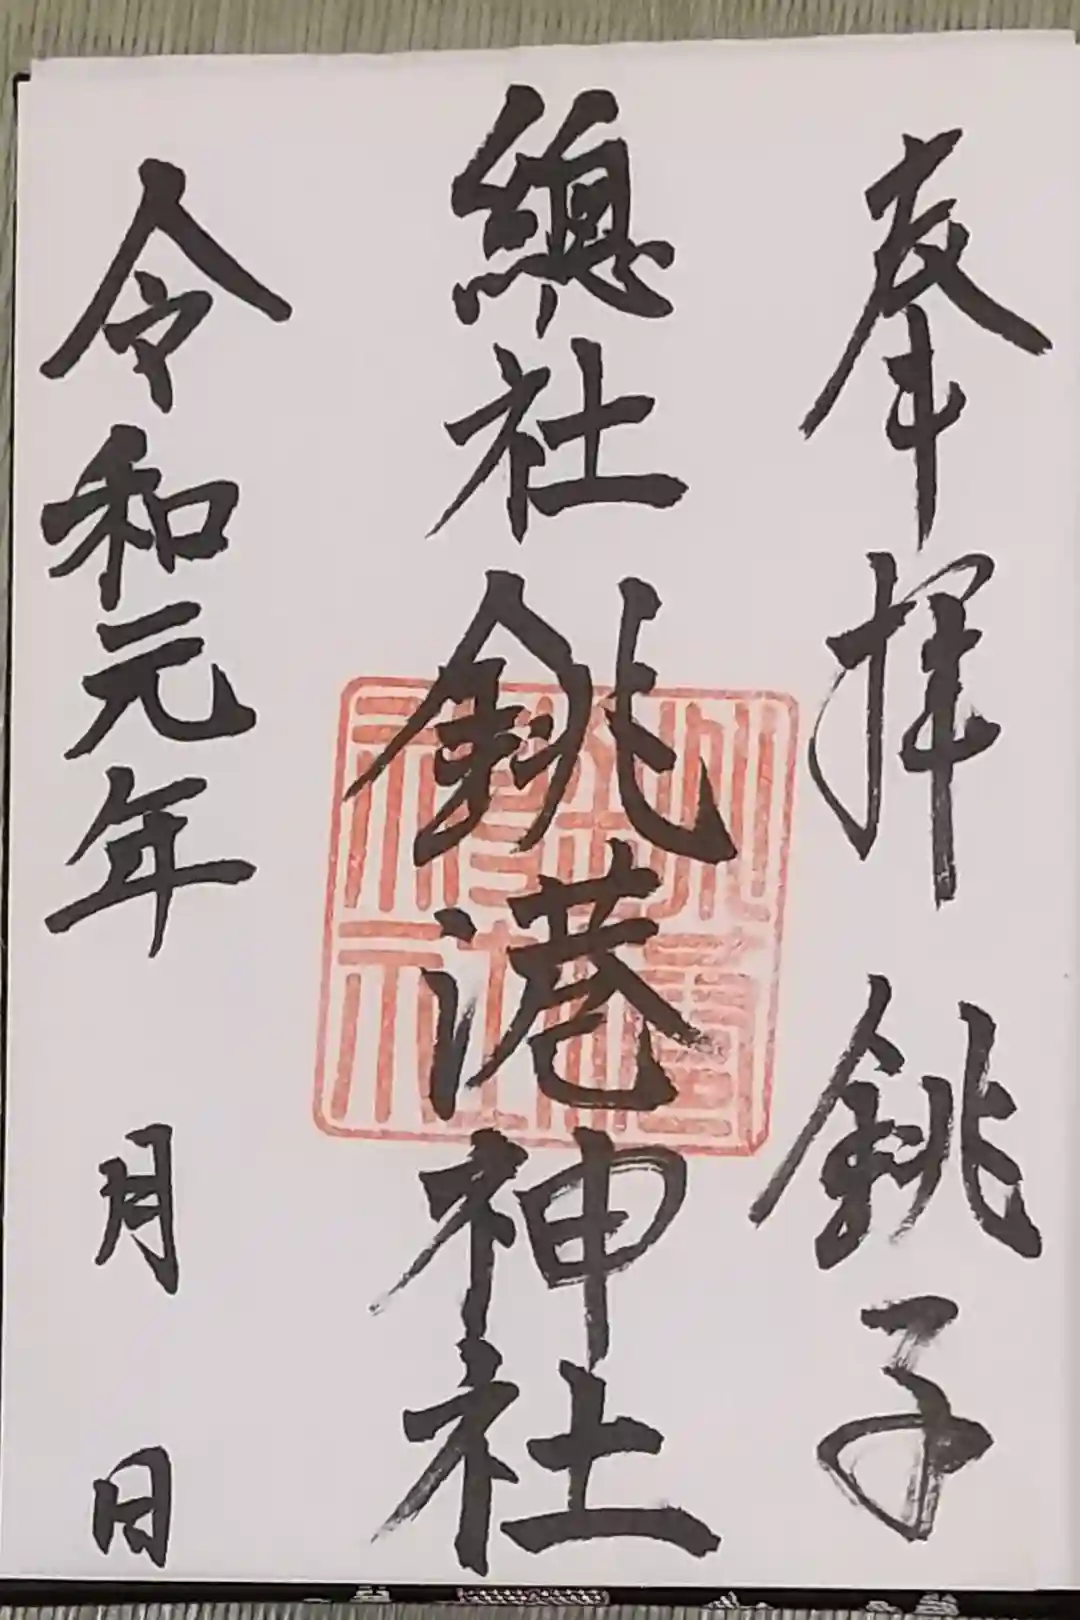 奉拝 銚子
總社 銚港神社
令和元年 月 日
銚港神社